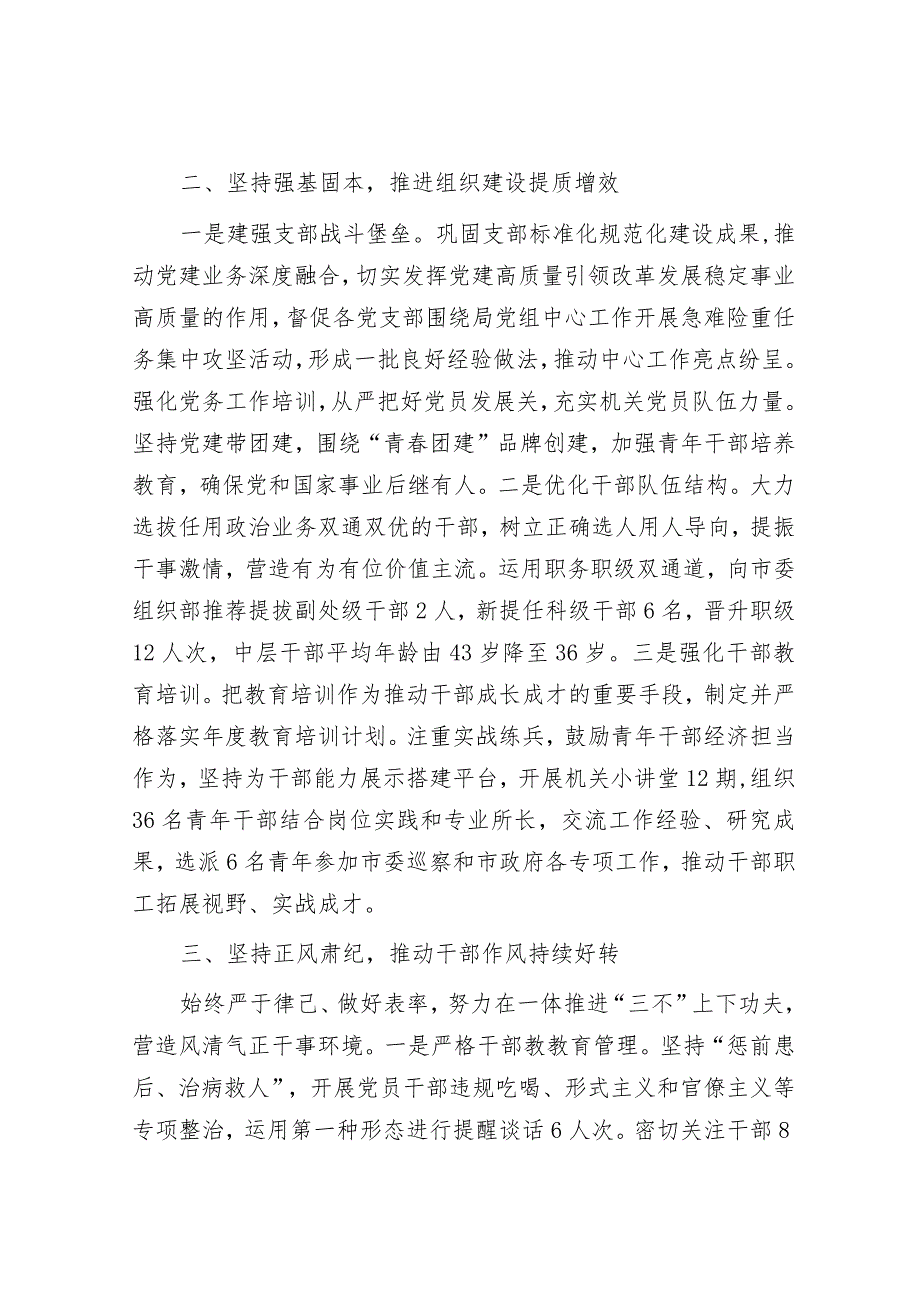 二、坚持强基固本，推进组织建设提质增效
一是建强支部战斗堡垒。巩固支部标准化规范化建设成果,推
动党建业务深度融合,切实发挥党建高质量引领改革发展稳定事业
高质量的作用,督促各党支部围绕局党组中心工作开展急难险重任
务集中攻坚活动,形成一批良好经验做法,推动中心工作亮点纷呈。
强化党务工作培训,从严把好党员发展关,充实机关党员队伍力量。
坚持党建带团建，围绕“青春团建”品牌创建，加强青年干部培养
教育，确保党和国家事业后继有人。二是优化干部队伍结构。大力
选拔任用政治业务双通双优的干部，树立正确选人用人导向，提振
干事激情，营造有为有位价值主流。运用职务职级双通道，向市委
组织部推荐提拔副处级干部 2 人，新提任科级干部 6 名，晋升职级
12 人次，中层干部平均年龄由 43 岁降至 36 岁。三是强化干部教
育培训。把教育培训作为推动干部成长成才的重要手段，制定并严
格落实年度教育培训计划。注重实战练兵，鼓励青年干部经济担当
作为，坚持为干部能力展示搭建平台，开展机关小讲堂 12 期,组织
36 名青年干部结合岗位实践和专业所长，交流工作经验、研究成
果，选派 6 名青年参加市委巡察和市政府各专项工作，推动干部职
工拓展视野、实战成才。
三、坚持正风肃纪，推动干部作风持续好转
始终严于律己、做好表率，努力在一体推进“三不”上下功夫，
营造风清气正干事环境。一是严格干部教教育管理。坚持“惩前患
后、治病救人”，开展党员干部违规吃喝、形式主义和官僚主义等
专项整治，运用第一种形态进行提醒谈话 6 人次。密切关注干部 8